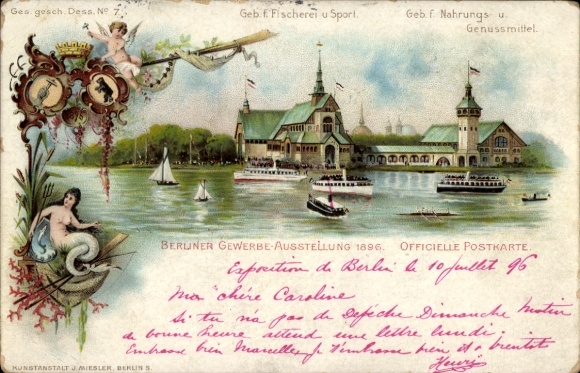 Ges. gesch. Dess. No 7.
Geb. f. Fischerei u Sport.
Geb. f Nahrungs u.
Genussmittel.
BERLINER GEWERBE-AUSSTELLUNG 1896. OFFICIELLE POSTKARTE.
Exposition de Berlin le 10 Juillet 96
Ma chère Caroline
Si tu n'a pas de Depéche Dimanche Matin
de bonne heure attend une lettre lundi.
Embrasse bien Marcelle je t'embrasse bien et a bientot
Henri
KUNSTANSTALT J. MIESLER, BERLIN S.